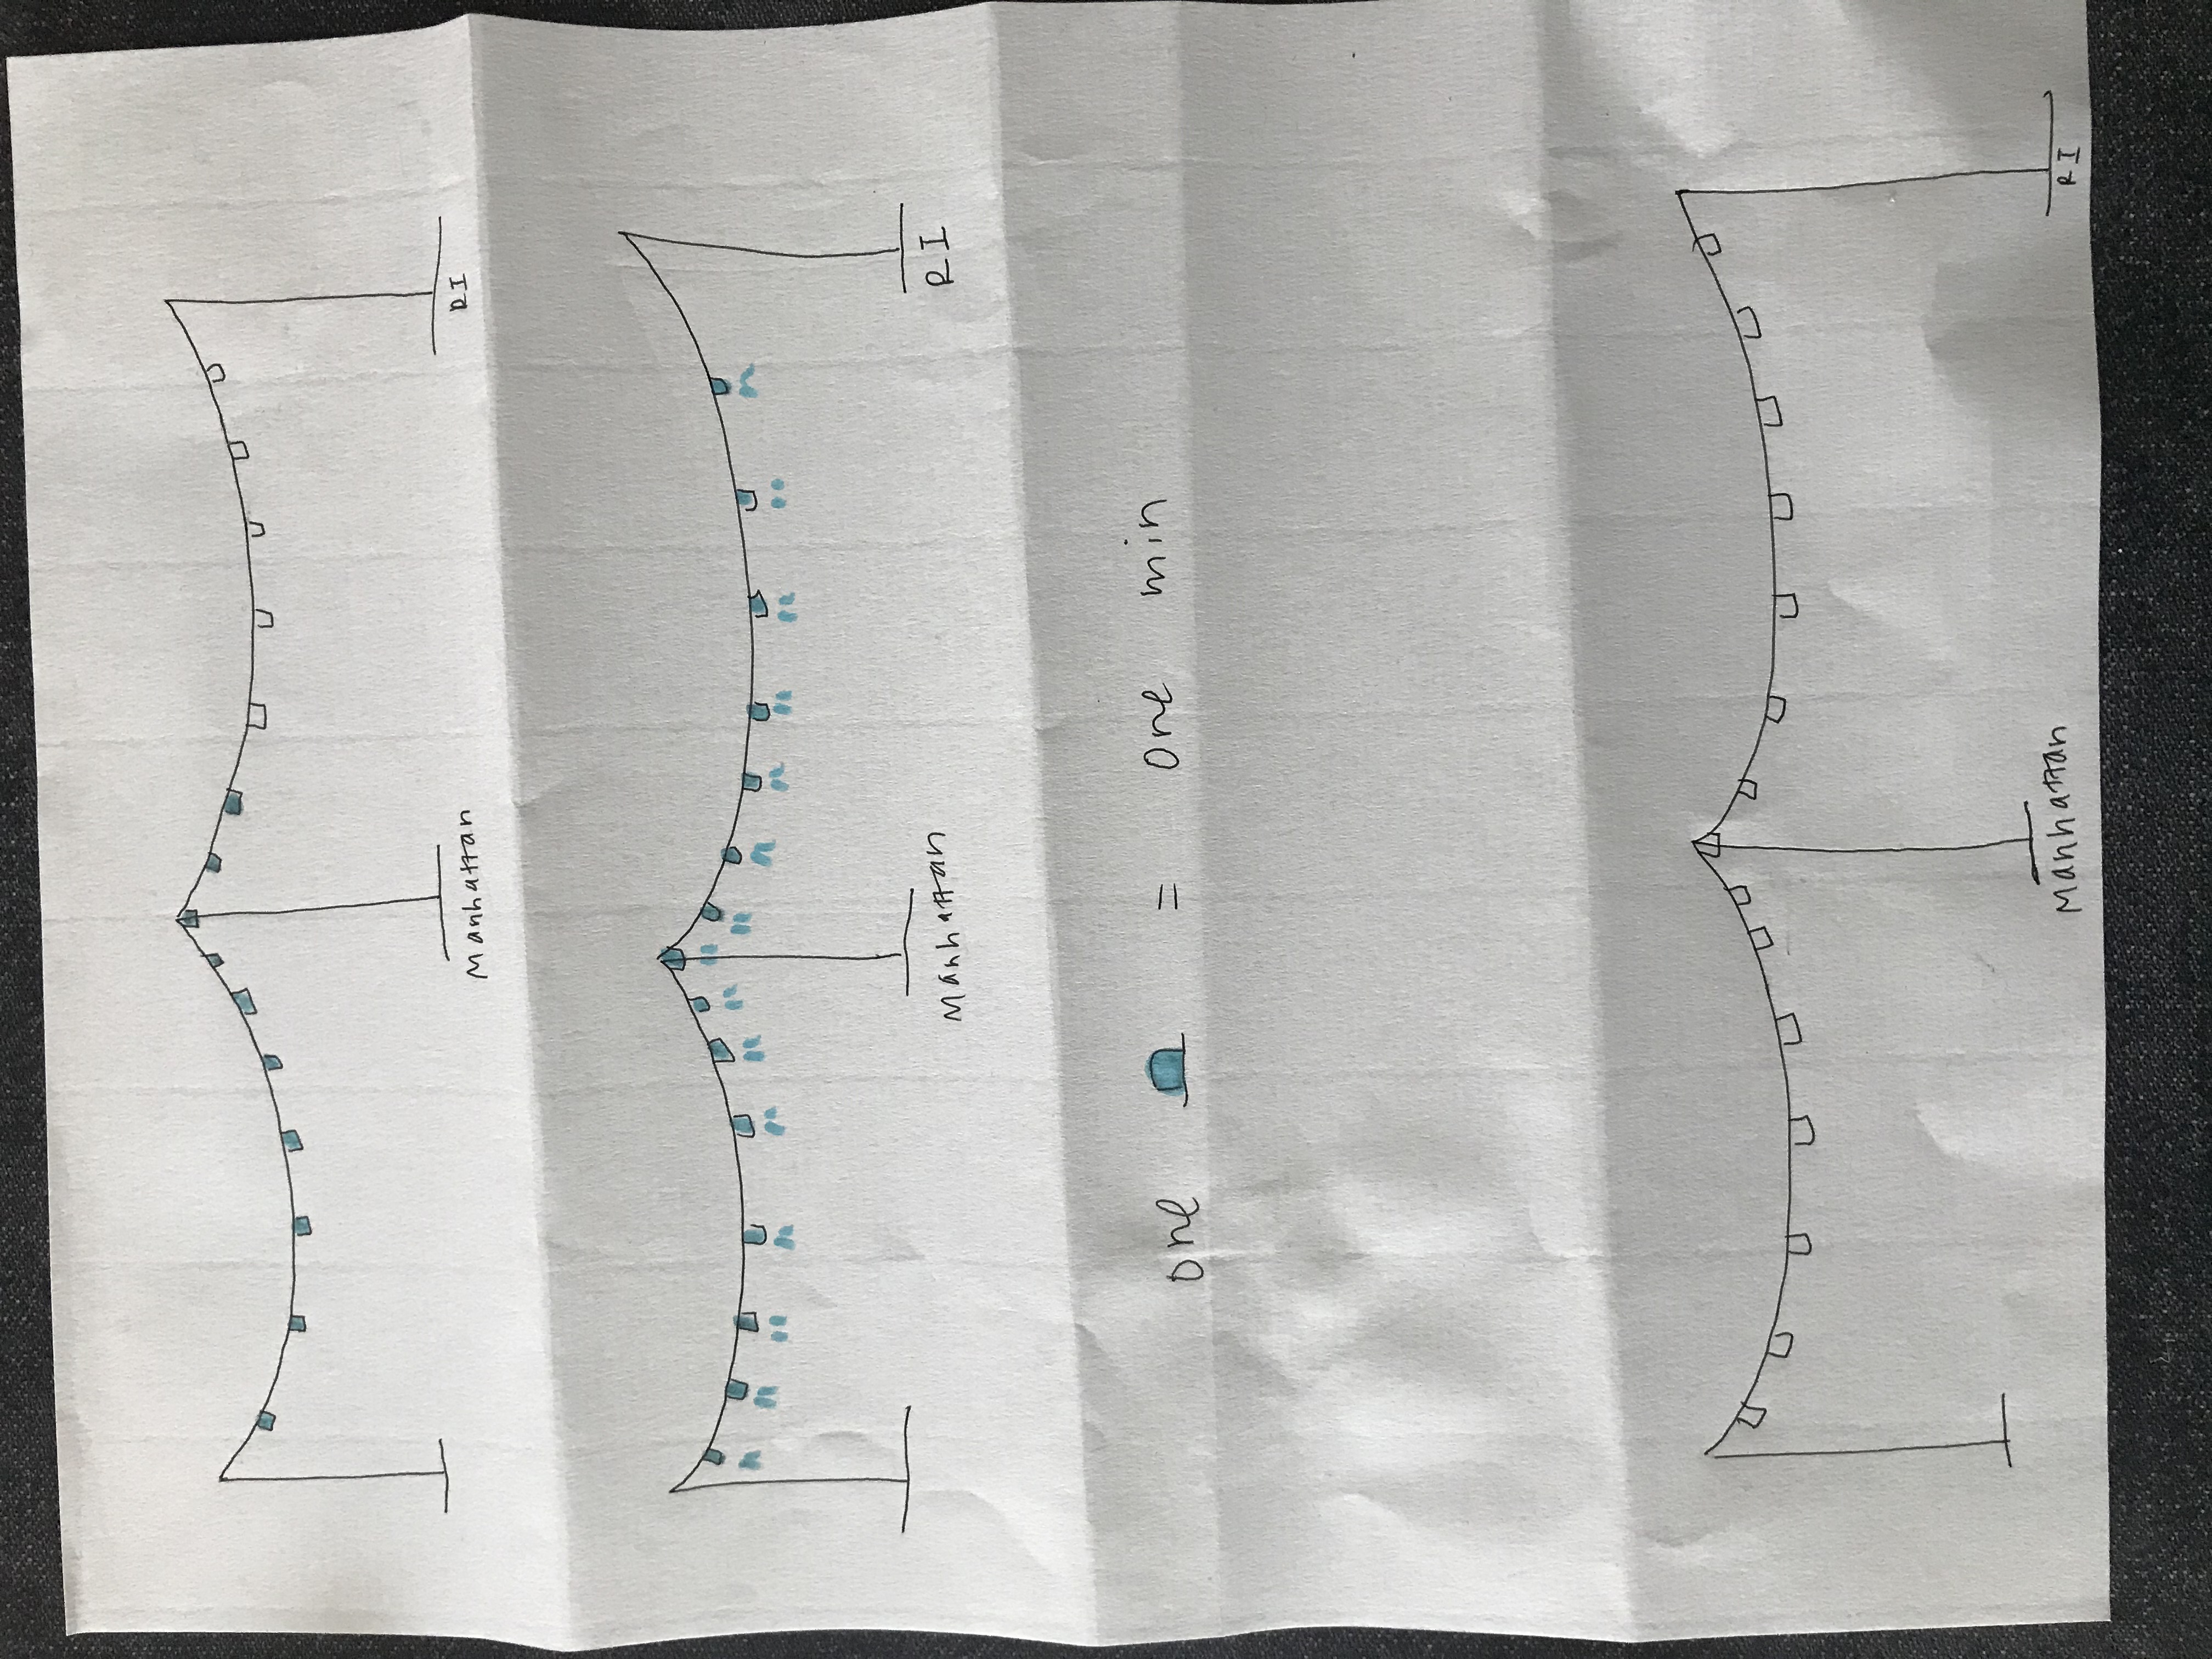 Manhattan
RI
Manhattan
RI
one = one min
Manhattan
RI